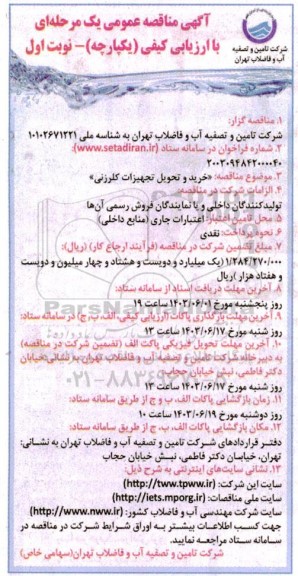 آگهی مناقصه عمومی یک مرحله‌ای
با ارزیابی کیفی (یکپارچه)- نوبت اول
شرکت تامین و تصفیه
آب و فاضلاب تهران
۱. مناقصه گزار:
شرکت تامین و تصفیه آب و فاضلاب تهران به شناسه ملی ۱۰۱۰۲۶۷۱۲۲۱
۲. شماره فراخوان در سامانه ستاد (www.setadiran.ir):
۲۰۰۳۰۹۴۸۴۲۰۰۰۰۴۰
۳. موضوع مناقصه: «خرید و تحویل تجهیزات کلرزنی»
۴. الزامات شرکت در مناقصه:
تولیدکنندگان داخلی و یا نمایندگان فروش رسمی آن‌ها
۵. محل تامین اعتبار: اعتبارات جاری (منابع داخلی)
۶. نحوه پرداخت: نقدی
۷. مبلغ تضمین شرکت در مناقصه (فرآیند ارجاع کار) (ریال):
۱/۲۸۴/۲۷۰/۰۰۰ (یک میلیارد و دویست و هشتاد و چهار میلیون و دویست
و هفتاد هزار) ریال
۸. آخرین مهلت دریافت اسناد از سامانه ستاد:
روز پنجشنبه مورخ ۱۴۰۳/۰۶/۰۱ ساعت ۱۹
۹. آخرین مهلت بارگذاری پاکات (ارزیابی کیفی، الف، ب، ج) در سامانه ستاد:
روز شنبه مورخ ۱۴۰۳/۰۶/۱۷ ساعت ۱۳
۱۰. آخرین مهلت تحویل فیزیکی پاکت الف (تضمین شرکت در مناقصه)
به دبیرخانه شرکت تامین و تصفیه آب و فاضلاب تهران به نشانی: خیابان
دکتر فاطمی، نبش خیابان حجاب
روز شنبه مورخ ۱۴۰۳/۰۶/۱۷ ساعت ۱۳
۱۱. زمان بازگشایی پاکات الف، ب و ج از طریق سامانه ستاد:
روز دوشنبه مورخ ۱۴۰۳/۰۶/۱۹ ساعت ۱۰
۱۲. مکان بازگشایی پاکات الف، ب، ج از طریق سامانه ستاد:
دفتر قراردادهای شرکت تامین و تصفیه آب و فاضلاب تهران به نشانی:
تهران، خیابان دکتر فاطمی، نبش خیابان حجاب
۱۳. نشانی سایت‌های اینترنتی به شرح ذیل:
سایت این شرکت: (http://tww.tpww.ir)
سایت ملی مناقصات: (http://iets.mporg.ir)
سایت شرکت مهندسی آب و فاضلاب کشور: (http://www.nww.ir)
جهت کسب اطلاعات بیشتر به اوراق شرایط شرکت در مناقصه در
سامانه ستاد مراجعه نمایید.
شرکت تامین و تصفیه آب و فاضلاب تهران (سهامی خاص)